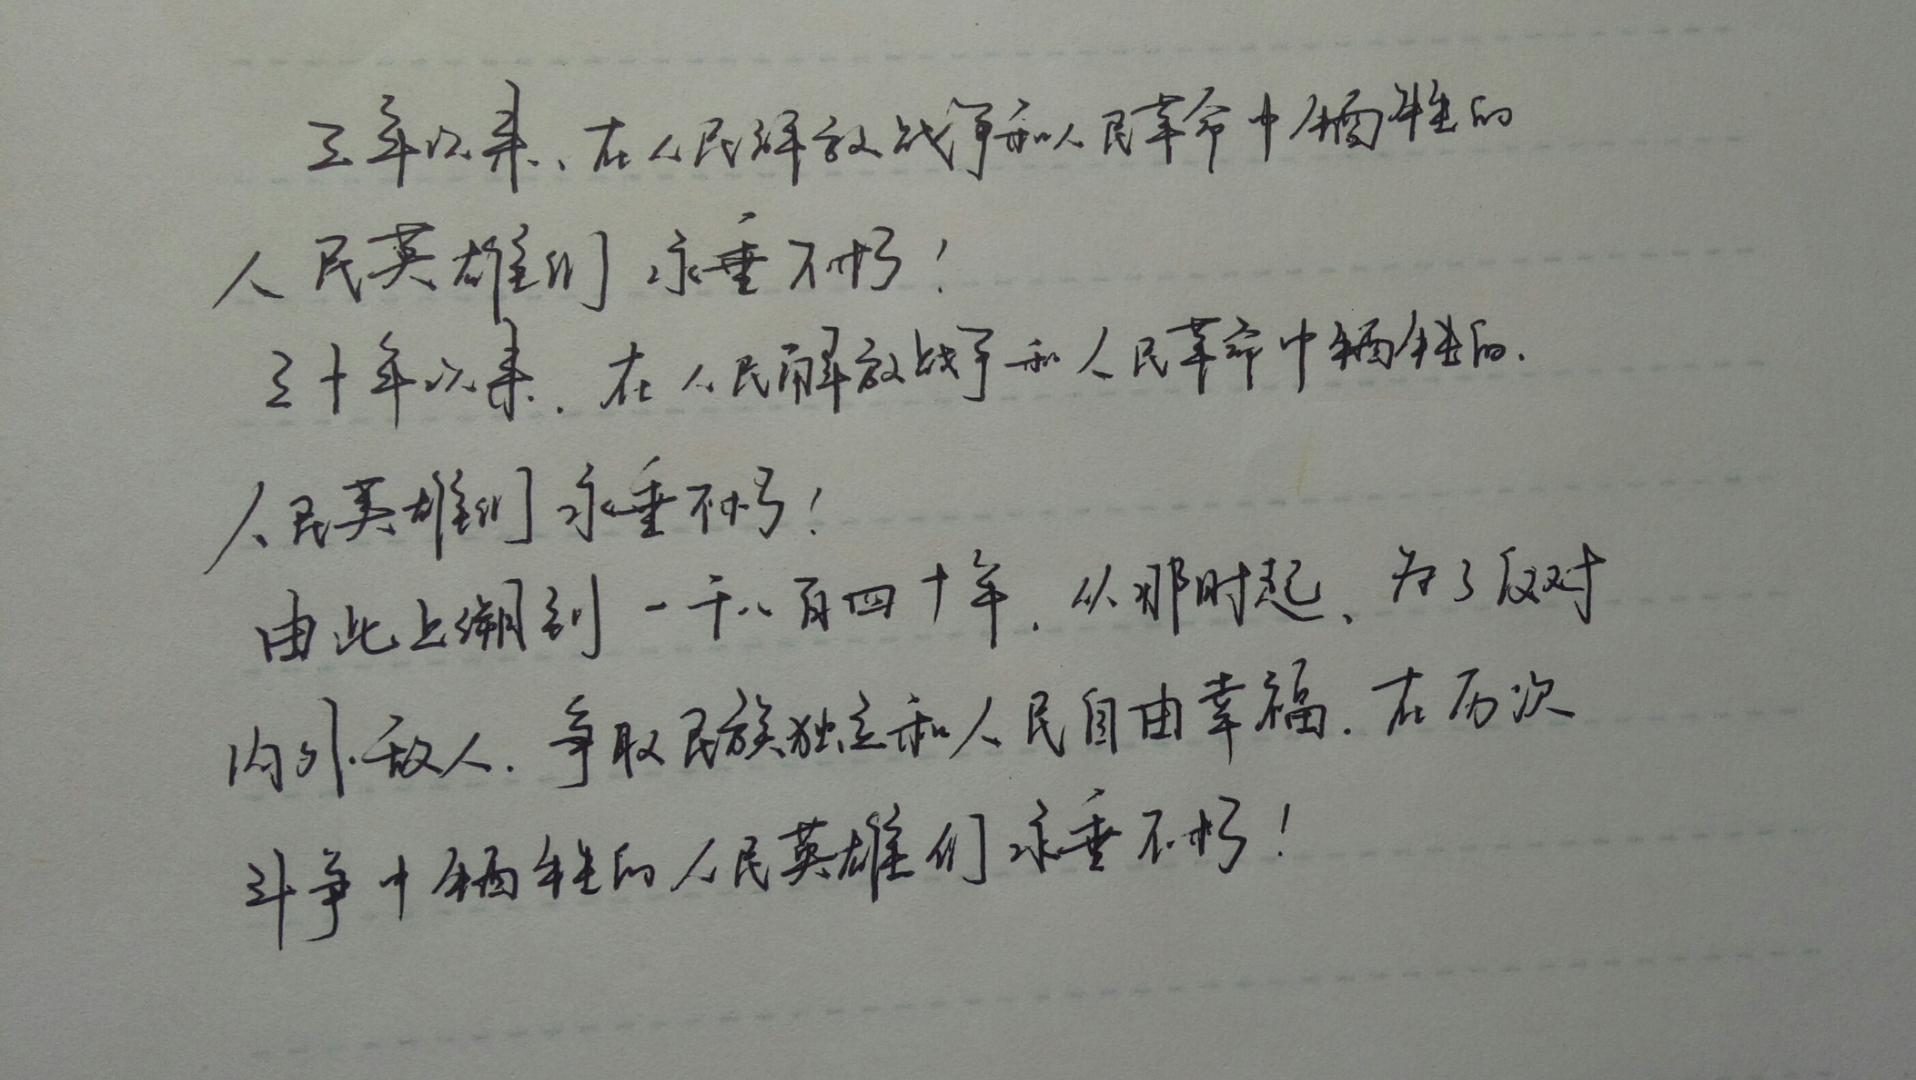 三年以来、在人民解放战争和人民革命中牺牲的
人民英雄们永垂不朽！
三十年以来.在人民解放战争和人民革命中牺牲的.
人民英雄们永垂不朽！
由此上溯到一千八百四十年.从那时起、为了反对
内外敌人.争取民族独立和人民自由幸福.在历次
斗争中牺牲的人民英雄们永垂不朽！